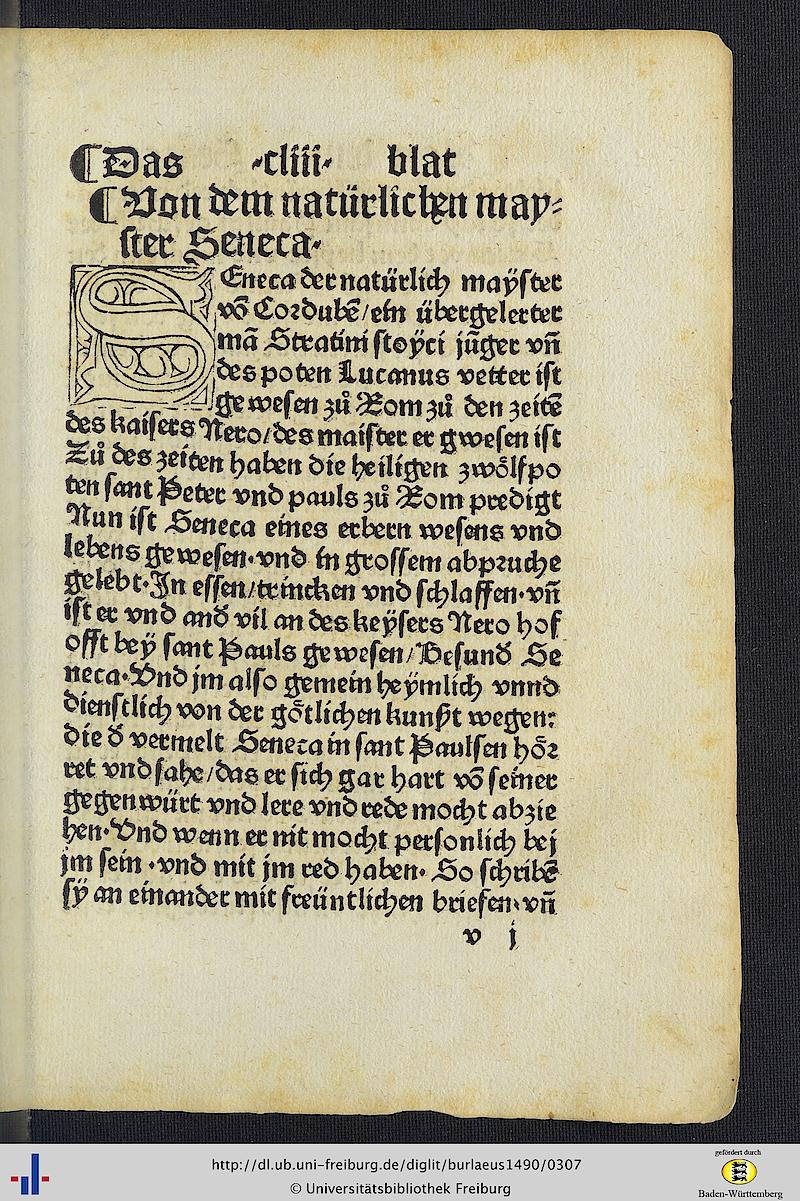 ¶Das ·cliii· blat
¶Von dem natürlichen may⸗
ster Seneca·
SEneca der natürlich maÿster
võ Cordubẽ/ein übergelerter
mã Stratini stoÿci jũger vñ
des poten Lucanus vetter ist
gewesen zů Rom zů den zeitẽ
des kaisers Nero/des maister er gwesen ist
Zů des zeiten haben die heiligen zwölfpo
ten sant Peter vnd pauls zů Rom predigt
Nun ist Seneca eines erbern wesens vnd
lebens gewesen·vnd in grossem abpruche
gelebt·In essen/trincken vnd schlaffen·vñ
ist er vnd and̾ vil an des keÿsers Nero hof
offt beÿ sant Pauls gewesen/Besund̾ Se
neca·Vnd jm also gemein heÿmlich vnnd
dienstlich von der götlichen kunst wegen:
die d̾ vermelt Seneca in sant Paulsen hör
ret vnd sahe/das er sich gar hart võ seiner
gegenwürt vnd lere vnd rede mocht abzie
hen·Vnd wenn er nit mocht personlich bej
jm sein ·vnd mit jm red haben· So schribẽ
sÿ an einander mit freüntlichen briefen·vñ
v j
http://dl.ub.uni-freiburg.de/diglit/burlaeus1490/0307
© Universitätsbibliothek Freiburg
gefördert durch
Baden-Württemberg